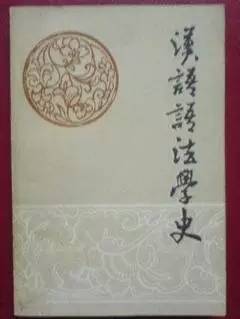 漢語語法學史